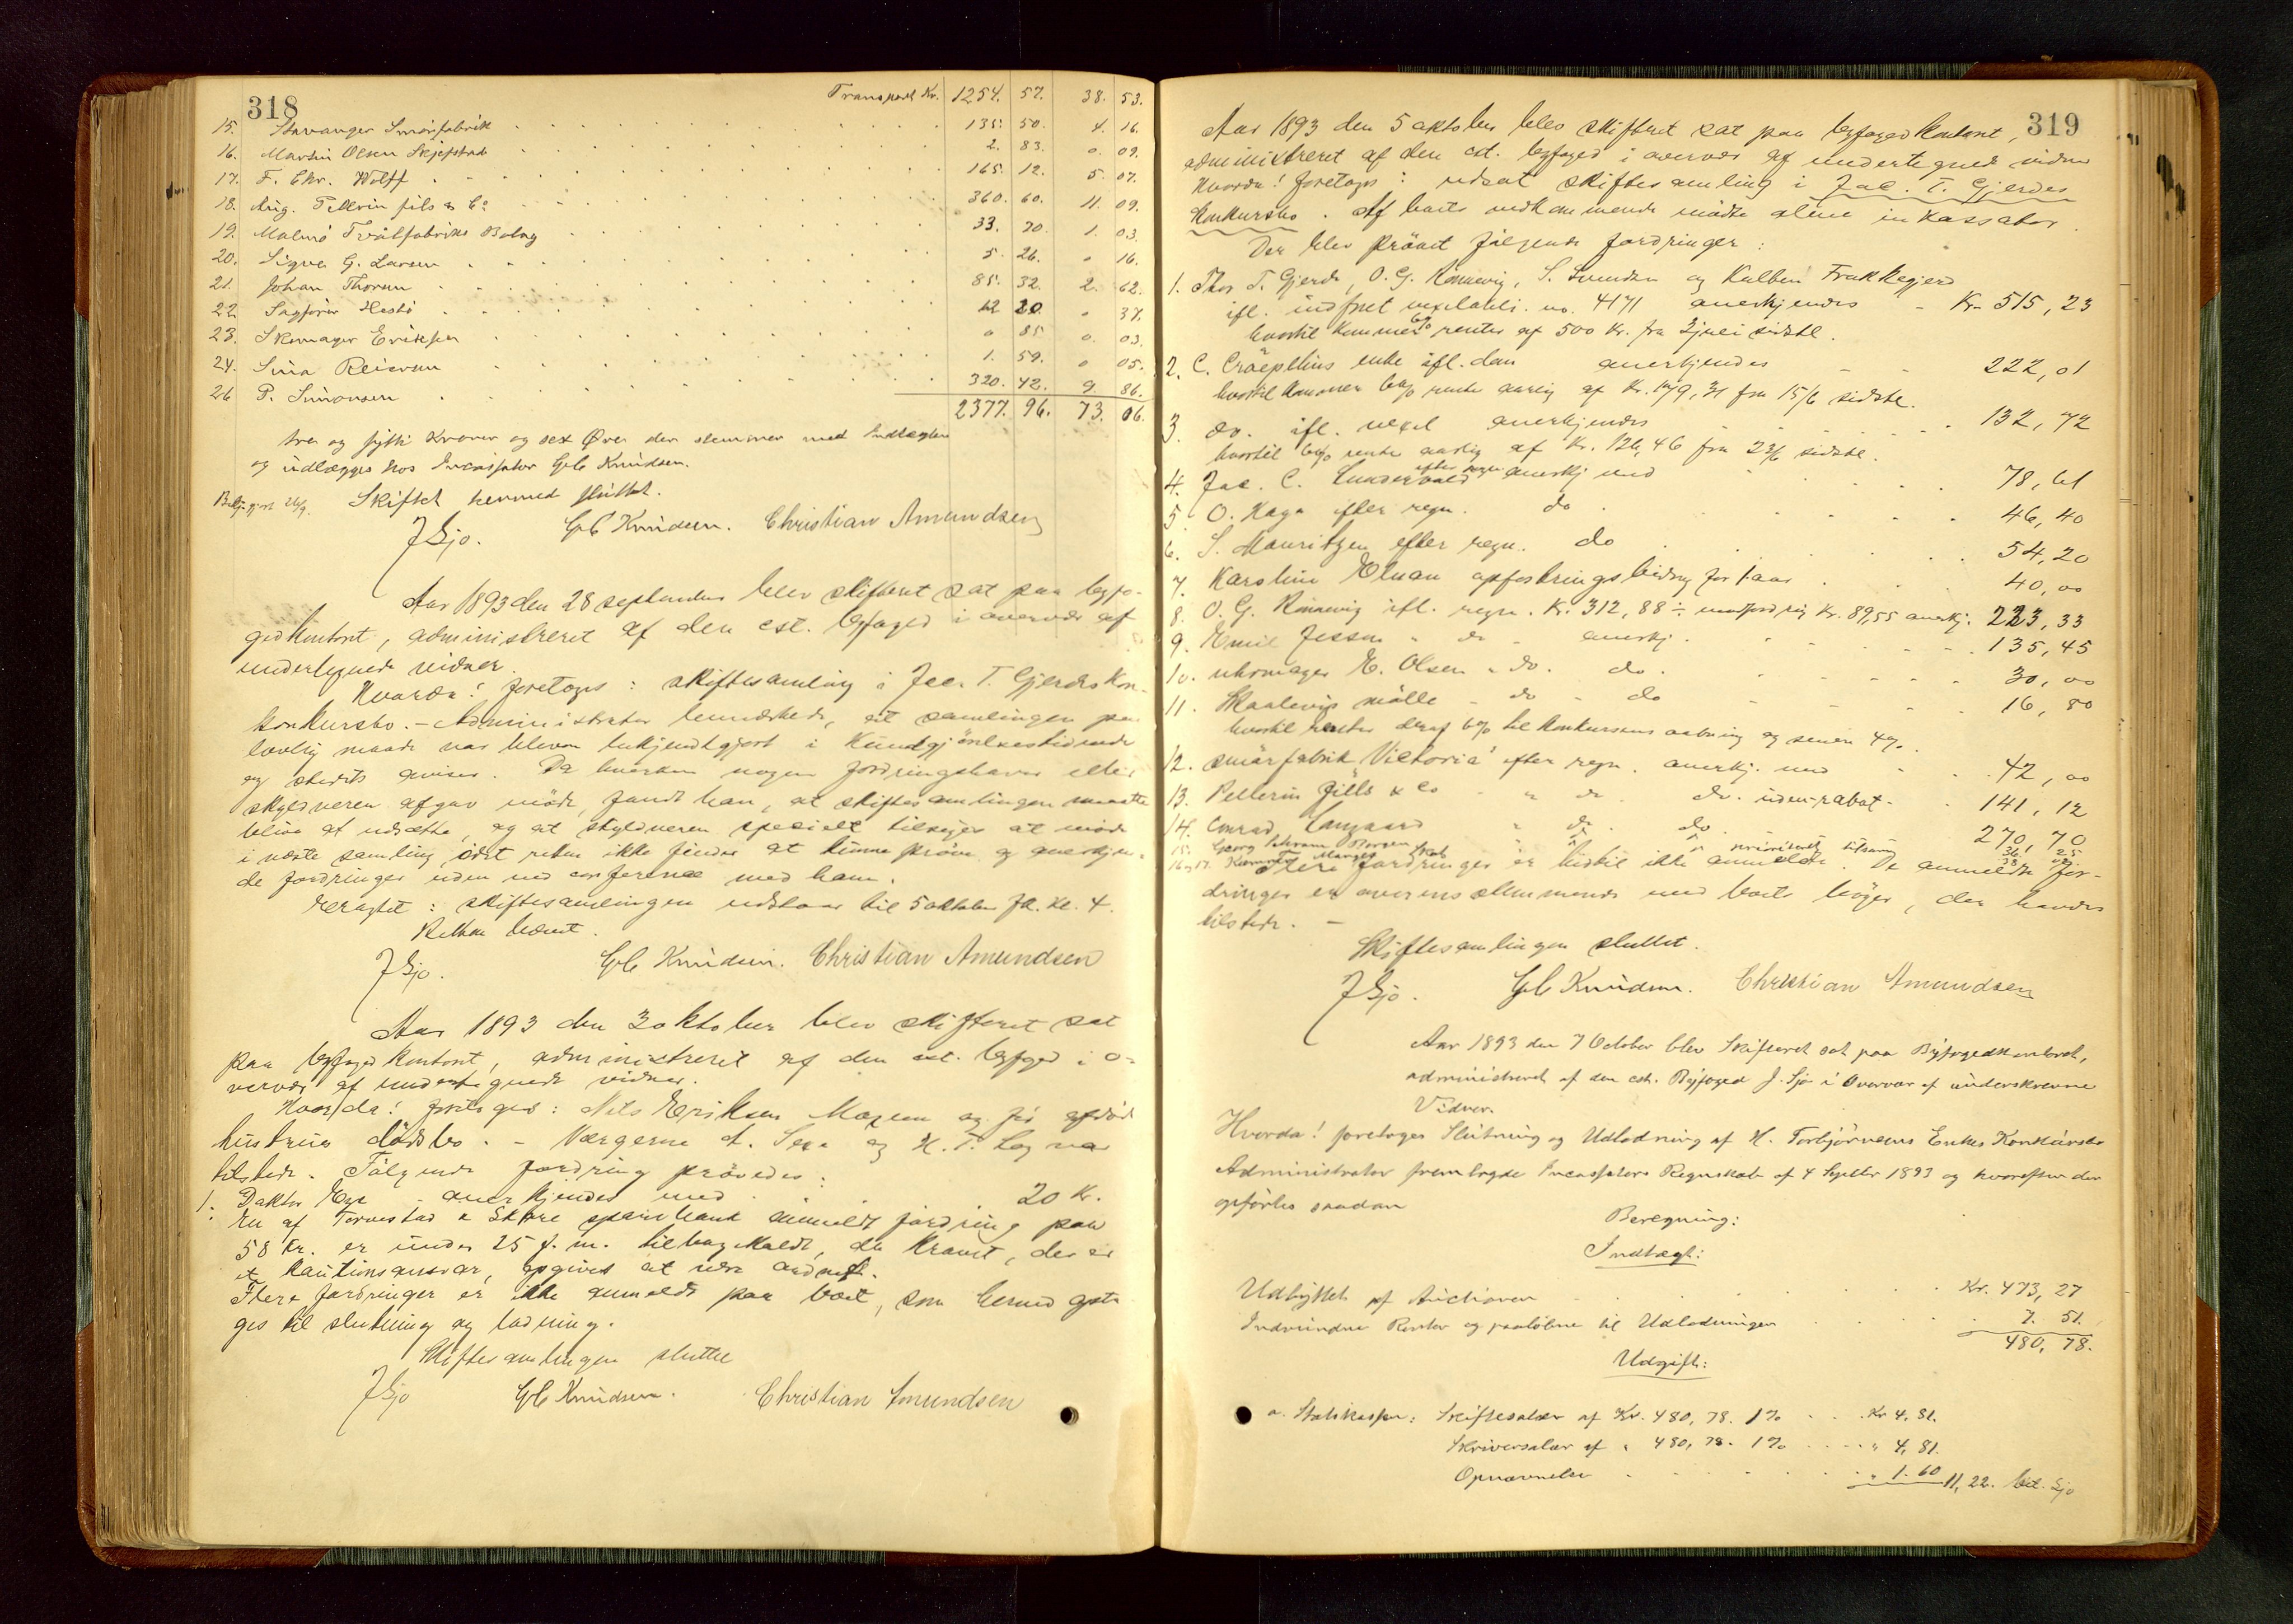 318
Transport Kr. 1254. 57. 38. 53.
15. Stavanger Smørfabrik 135. 50. 4. 16.
16. Martin Olsen Skjefstad 2. 83. 0. 09.
17. F. Chr. Wolff 165. 12. 5. 07.
18. Aug. Pellerin fils & Co 360. 60. 11. 09.
19. Malmö Tvålfabriks Bolag 33. 70. 1. 03.
20. Sigva G. Larsen 5. 26. 0 16.
21. Johan Thorsen 85. 32. 2. 62.
22. Sagfører Hestø 12 20. 0 37.
23. Skomager Eriksen 0 85 0. 03.
24. Sina Reiersen 1. 59. 0 05.
26 P. Simonsen 320. 42. 9 86.
2377. 96. 73. 06.
tre og sytti Kroner og sex Øre der stemmer med Indtægten
og udlægges hos Incassator Knudsen.
Skiftet hermed sluttet.
JSjo. Knudsen. Christian Amundsen
Aar 1893 den 28 september blev skifteret sat paa byfo-
gedkontoret, administreret af den cst. byfoged i overvær af
undertegnede vidner.
Hvorda! foretoges: skiftesamling i Jac. T. Gjerdes kon-
konkursbo. – Administrator bemærkede, at samlingen paa
lovlig maade var bleven bekjendtgjort i Kundgjörelsestidende
og stedets aviser. Da hverken nogen fordringshaver eller
skyldneren afgav möde, fandt han, at skiftesamlingen maatte
blive at udsætte, og at skyldneren specielt tilsiges at möde
i næste samling, idet retten ikke finder at kunne pröve og anerkjen-
de fordringer uden ved conference med ham.
Eragtet: skiftesamlingen udstaar til 5 oktober fk. kl. 4.
Retten hævet.
JSjo. Knudsen. Christian Amundsen
Aar 1893 den 3 oktober blev skifteret sat
paa byfogedkontoret, administreret af den cst. byfoged i o-
vervær af undertegnede vidner.
Hvorda! foretoges: Nils Eriksen og hs afdöde
hustrues dödsbo. – Værgerne og H. T. var
tilstede. Fölgende fordring prövedes:
1. Doktor anerkjendes med 20 Kr.
En af Torvestad & Skåre sparebank anmeldt fordring paa
58 Kr. er under 25 f. m. tilbagekaldt, da kravet, der er
et kautionsansvar, opgives at være ordnet.
Flere fordringer er ikke anmeldt paa boet, som hermed opta-
ges til slutning og lodning.
Skiftesamlingen sluttet
JSjo Knudsen. Christian Amundsen
319
Aar 1893 den 5 oktober blev skifteret sat paa byfogedkontoret,
administreret af den cst. byfoged i overvær af undertegnede vidner
Hvorda! foretoges: udsat skiftesamling i Jac. T. Gjerdes
konkursbo. Af boets vedkommende mödte alene inkassator.
Der blev prövet fölgende fordringer:
1. Thor T. Gjerde, O. G. Rönnevig, S. Svendsen og Kalben Frakkagjerd
ifl. indfriet no. 4171 anerkjendes Kr. 515,23
hvortil kommer 6% renter af 500 Kr. fra 2 juli sidstl.
2. C. enke ifl. dom anerkjendes 222,01
hvortil kommer 6% rente aarlig af Kr. fra 15/6 sidstl.
3. do. ifl. vexel anerkjendes 132,72
hvortil 6% rente aarlig af Kr. 126,46 fra 23/6 sidstl.
4. Jac. C. efter regn. anerkj. med 78,61
5. O. Haga efter regn. do 46,40
6. S. Mauritzen efter regn. do 54,20
7. Karoline opfostringsbidrag for 1 aar 40,00
8. O. G. Rönnevig ifl. regn. Kr. 312,88 ÷ modfordring Kr. 89,55 anerkj. 223,33
9. Emil Jessen " do " anerkj. 135,45
10. uhrmager E. Olsen " do. do. 30,00
11. Skaalevigs mölle " do " do 16,80
hvortil renter deraf 6% til konkursens aabning og senere 4%.
12. smörfabrik "Victoria" efter regn. anerkj. med 42,00
13. Pellerin Fills & Co " do do. uden rabat. 141,12
14. Conrad Langaard " do. do. 270,70
15. Georg Schram Bergen
Flere fordringer er hidtil ikke anmeldt. De anmeldte for-
dringer er overensstemmende med boets böger, der havdes
tilstede. –
Skiftesamlingen sluttet.
JSjo. Knudsen. Christian Amundsen
Aar 1893 den 7 October blev Skifteret sat paa Byfogedkontoret,
administreret af den cst. Byfoged J. Sjo i Overvær af underskrevne
Vidner.
Hvorda! foretoges Slutning og Udlodning af H. Torbjörnsens Enkes Konkursbo
Administrator fremlagde Incassators Regnskab af 4 Septbr 1893 og hvorefter der
opførtes saadan
Beregning:
Indtægt:
Udbyttet af Auctionen Kr. 473,27
Indvundne Renter og paaløbne til Udlodningen 7. 51.
480,78.
Udgift:
a. Statskassen: Skiftesalær af Kr. 480,78. 1% Kr 4,81.
Skriversalær af " 480,78. 1% " 4,81.
Opnævnelse " 1.60 11,22. bet. Sjo